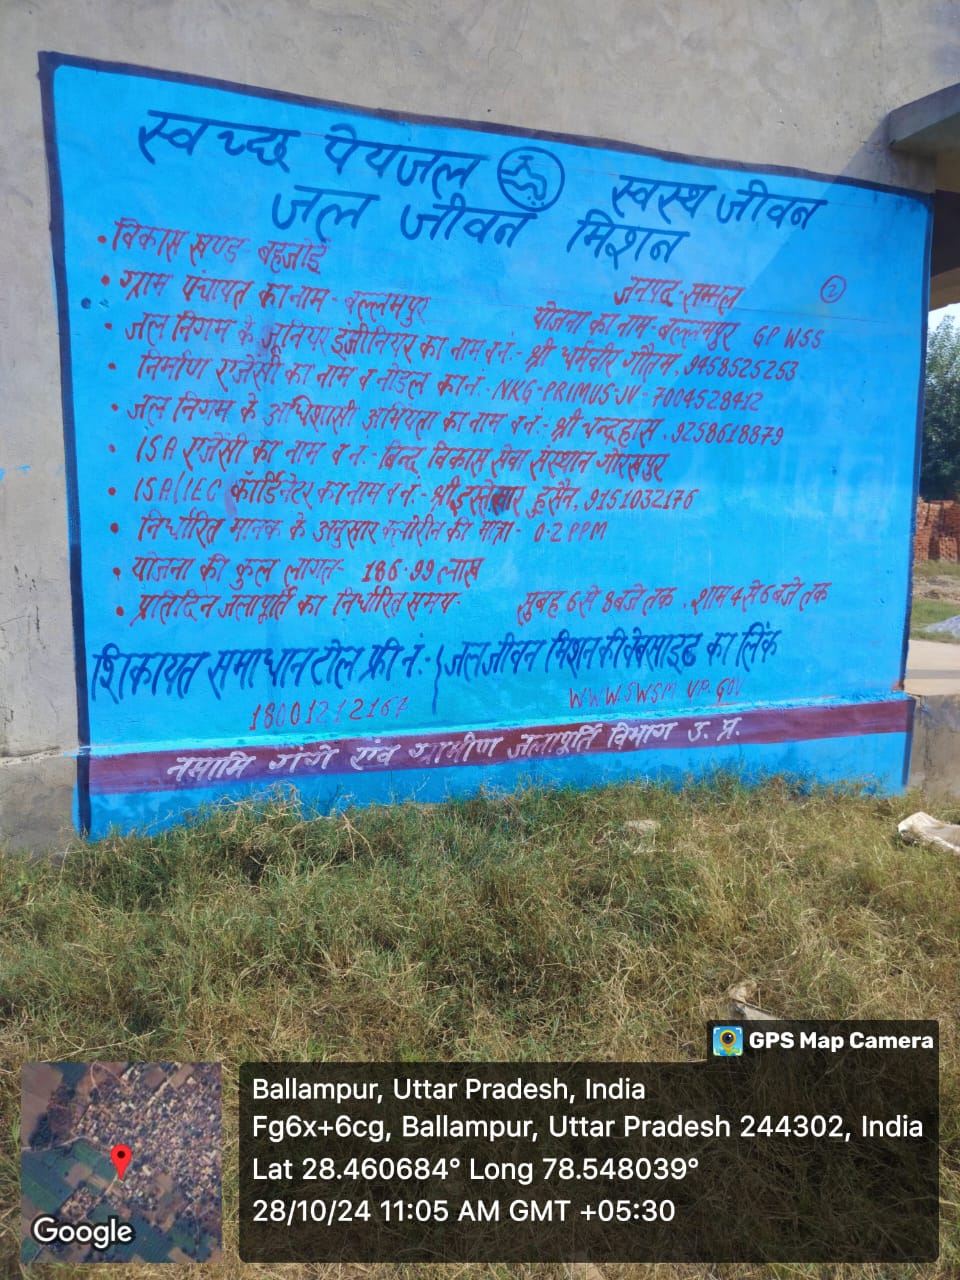 स्वच्छ पेयजल स्वस्थ जीवन
जल जीवन मिशन
• विकास खण्ड बहजोई जनपद-सम्भल 2
• ग्राम पंचायत का नाम- बल्लमपुर योजना का नाम- बल्लमपुर GP WSS
• जल निगम के जूनियर इंजीनियर का नाम व नं:- श्री धर्मवीर गौतम, 9458525253
• निर्माण एजेंसी का नाम व नोडल का नं:- NKG-PRIMUS-JV-7004528412
• जल निगम के अधिशासी अभियंता का नाम व नं:- श्री चन्द्रहास, 9258618879
• ISA एजेंसी का नाम व नं:- बिन्दु विकास सेवा संस्थान गोरखपुर
• ISA/IEC कॉर्डिनेटर का नाम व नं:- श्री हुसैन, 9151032176
• निर्धारित मानक के अनुसार क्लोरीन की मात्रा- 0.2 PPM
• योजना की कुल लागत- 186.99 लाख
• प्रतिदिन जलापूर्ति का निर्धारित समय- सुबह 6 से 8 बजे तक, शाम 4 से 6 बजे तक
शिकायत समाधान टोल फ्री नं:- जल जीवन मिशन की वेबसाइट का लिंक
18001212164 WWW.SWSM.UP.GOV
नमामि गंगे एंव ग्रामीण जलापूर्ति विभाग उ. प्र.
GPS Map Camera
Ballampur, Uttar Pradesh, India
Fg6x+6cg, Ballampur, Uttar Pradesh 244302, India
Lat 28.460684° Long 78.548039°
28/10/24 11:05 AM GMT +05:30
Google